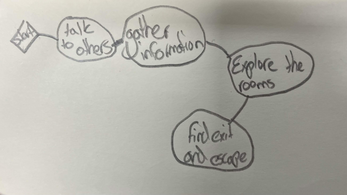 Start
talk
to others
gather
information
Explore the
rooms
find exit
and escape